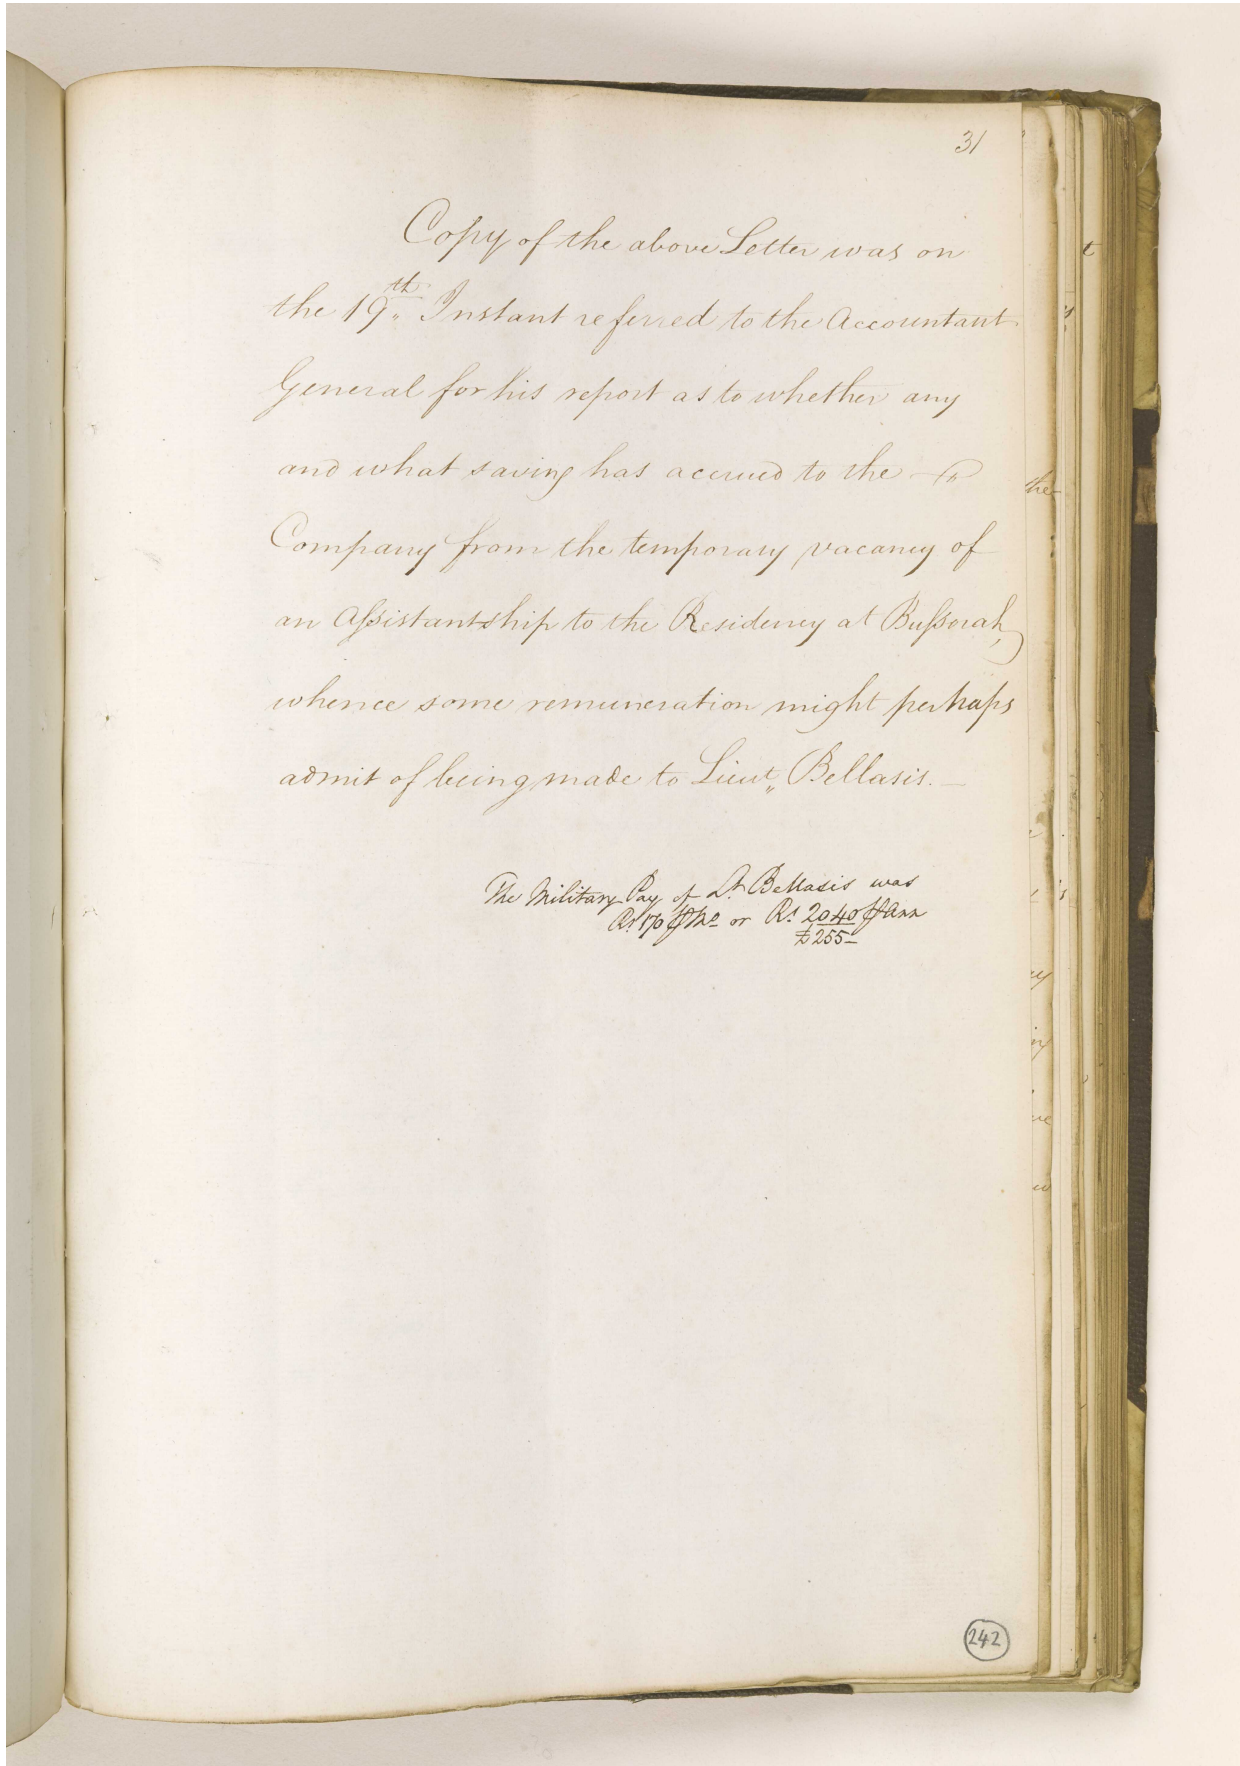 31
Copy of the above Letter was on
the 19th Instant referred to the Accountant
General for his report as to whether any
and what saving has accrued to the
Company from the temporary vacancy of
an Aſsistantship to the Residency at Buſsorah,
whence some remuneration might perhaps
admit of being made to Lieut„ Bellasis. —
The Military Pay of Lt. Bellasis was
Rs 170 ⅌ Mo or Rs 2040 ⅌ Ann
£255—
242
t
the
ey
ing
ve
w